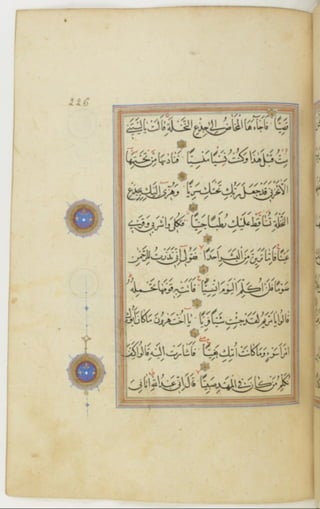 226
قَصِيًّا فَأَجَاءَهَا الْمَخَاضُ إِلَى جِذْعِ النَّخْلَةِ قَالَتْ يَا لَيْتَنِي
مِتُّ قَبْلَ هَذَا وَكُنْتُ نَسْيًا مَنْسِيًّا فَنَادَيهَا مِنْ تَحْتِهَا
أَلَّا تَحْزَنِي قَدْ جَعَلَ رَبُّكِ تَحْتَكِ سَرِيًّا وَهُزِّي إِلَيْكِ بِجِذْعِ
النَّخْلَةِ تُسَاقِطْ عَلَيْكِ رُطَبًا جَنِيًّا فَكُلِي وَاشْرَبِي وَقَرِّي
عَيْنًا فَإِمَّا تَرَيِنَّ مِنَ الْبَشَرِ أَحَدًا فَقُولِي إِنِّي نَذَرْتُ لِلرَّحْمَنِ
صَوْمًا فَلَنْ أُكَلِّمَ الْيَوْمَ إِنْسِيًّا فَأَتَتْ بِهِ قَوْمَهَا تَحْمِلُهُ
قَالُوا يَا مَرْيَمُ لَقَدْ جِئْتِ شَيْئًا فَرِيًّا يَا أُخْتَ هَرُونَ مَا كَانَ أَبُوكِ
امْرَأَ سَوْءٍ وَمَا كَانَتْ أُمُّكِ بَغِيًّا فَأَشَارَتْ إِلَيْهِ قَالُوا كَيْفَ
نُكَلِّمُ مَنْ كَانَ فِي الْمَهْدِ صَبِيًّا قَالَ إِنِّي عَبْدُ اللَّهِ آتَانِيَ